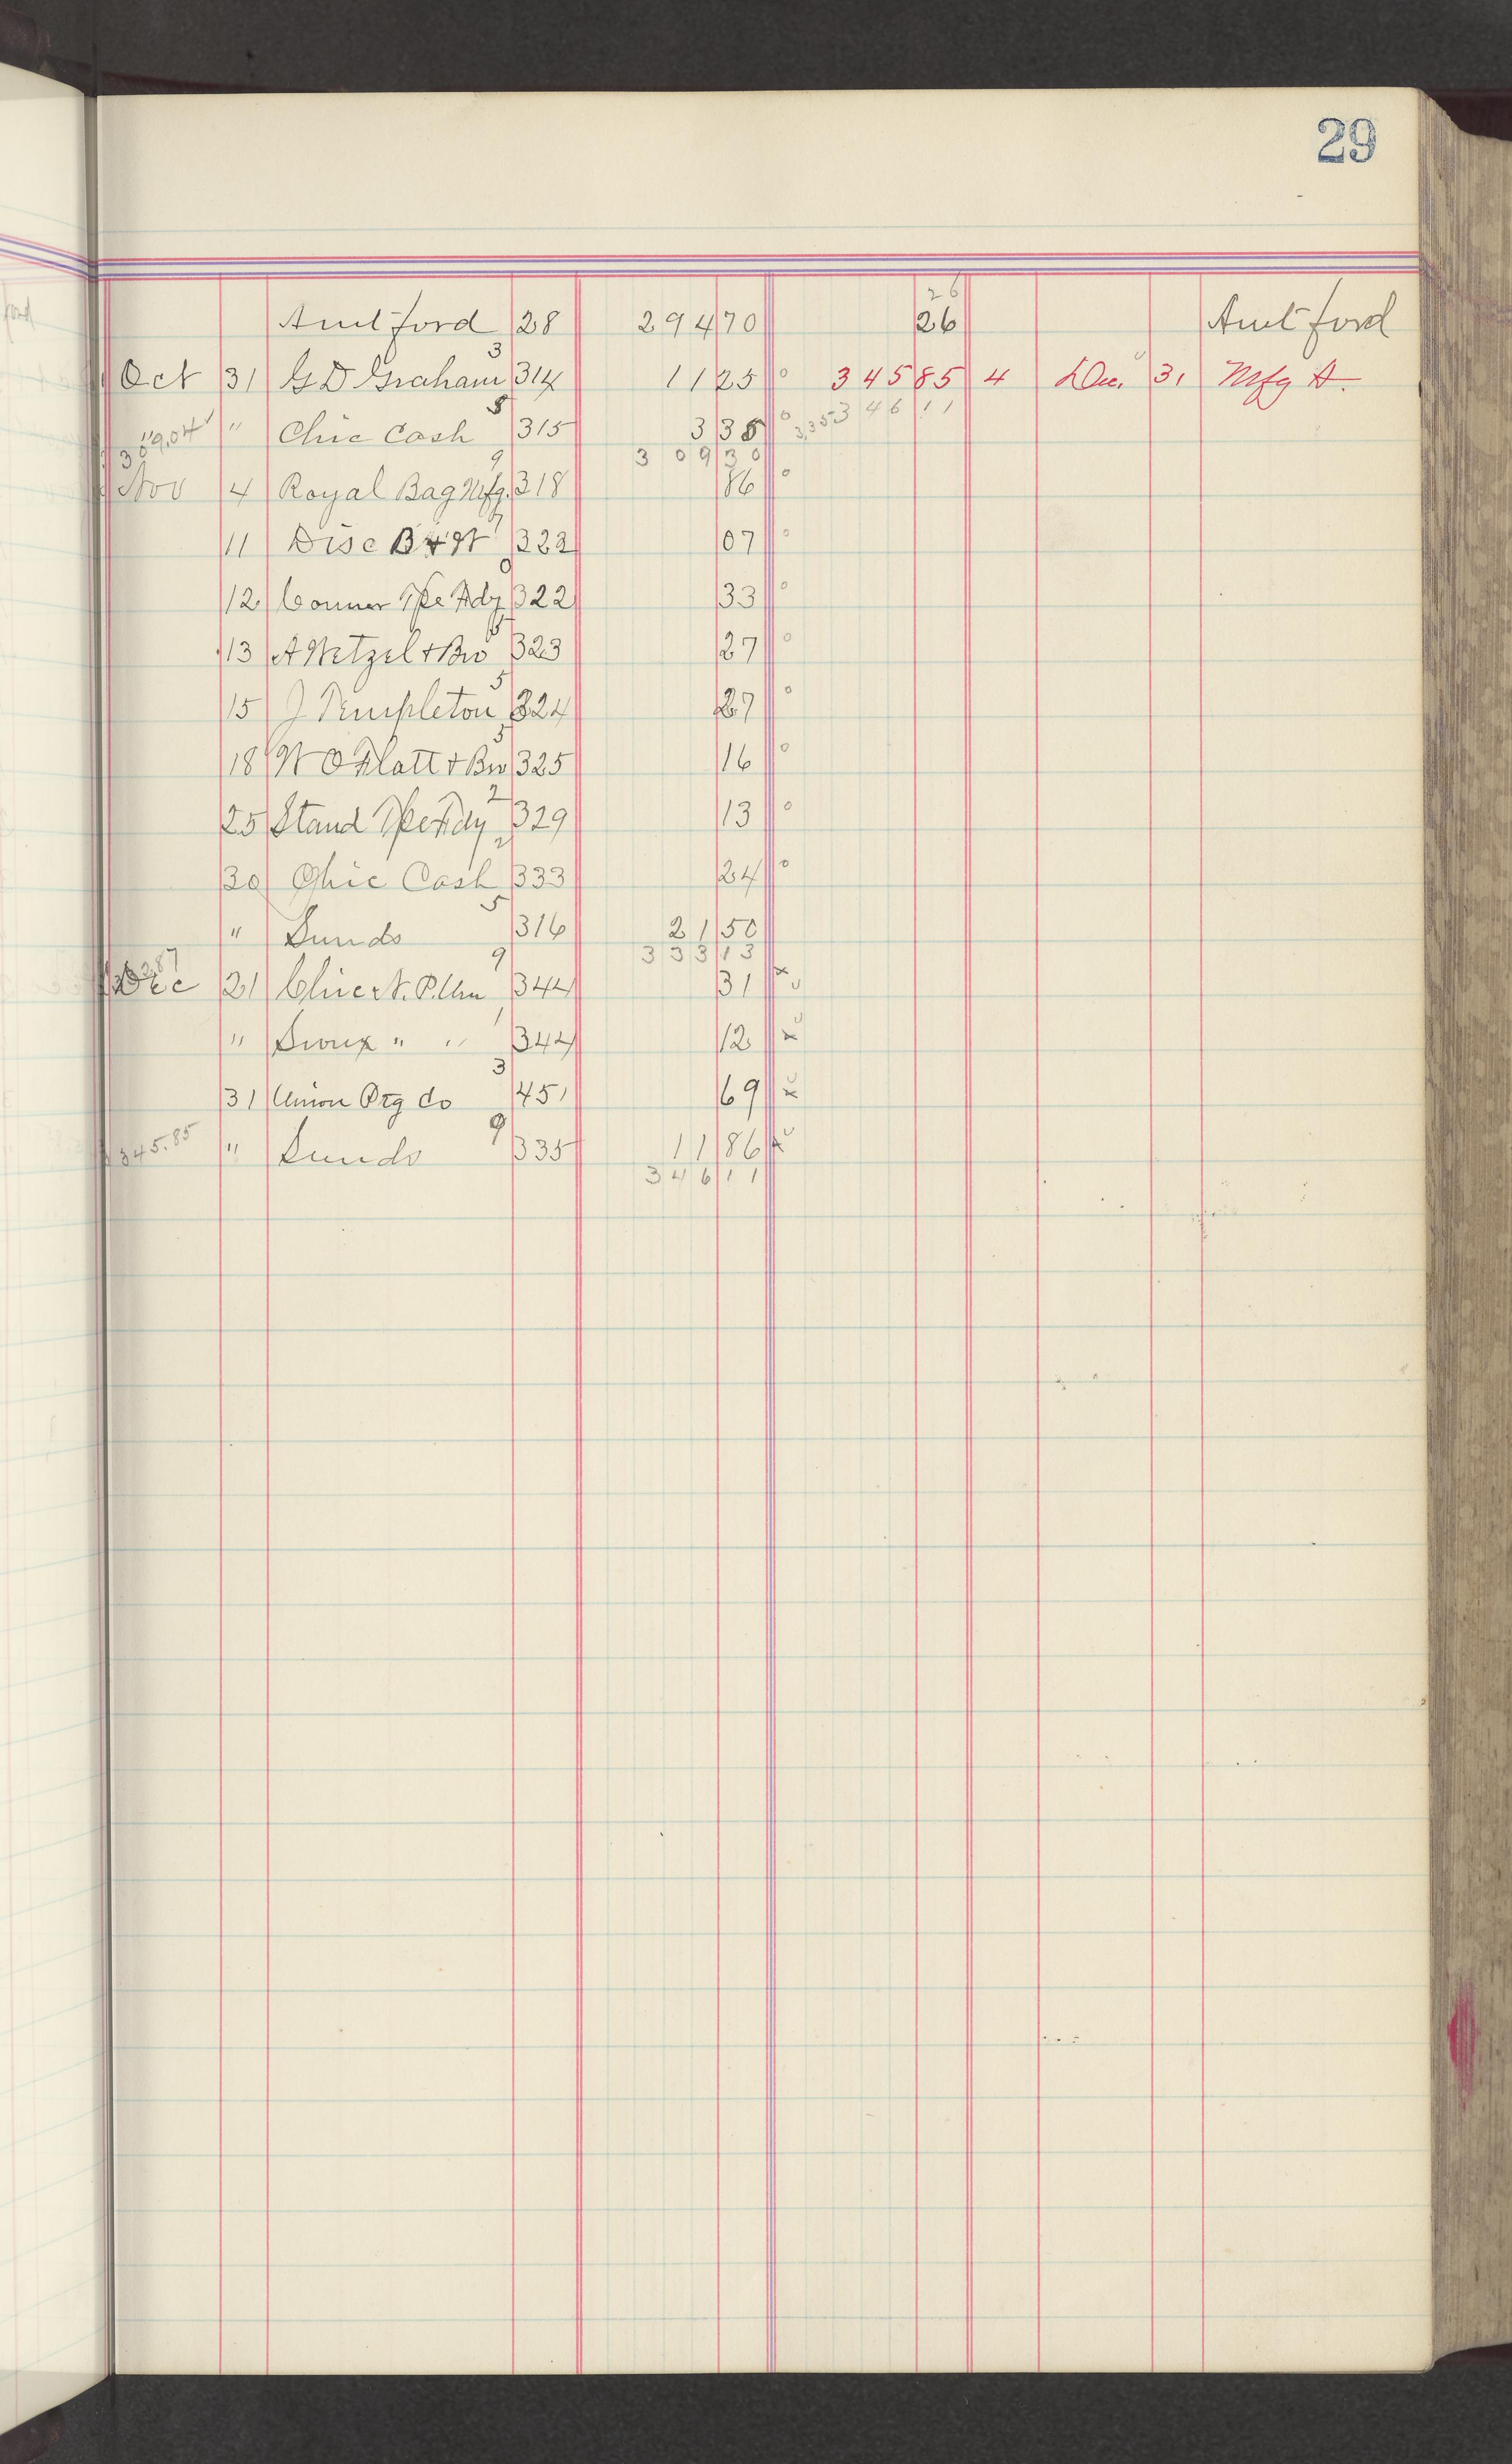 29
26
Amt ford 28 294 70 26 Amt ford
3
Oct 31 G D Graham 314 11 25 o 345 85 4 Dec. 31 Mfg A
5
309.04 " Chic Cash 315 3 35 o 3.35 346 11
309 30
9
Nov 4 Royal Bag Mfg. 318 86 o
11 Disc B & W 322 07 o
12 Conner Tpe Fdy 322 33 o
13 A Wetzel & Bro 323 27 o
5
15 J Templeton 324 27 o
5
18 W O Flatt & Bro 325 16 o
2
25 Stand Tpe Fdy 329 13 o
2
30 Chic Cash 333 24 o
5
" Sunds 316 21 50
333 13
9
Dec 21 Chic N. P. Un 344 31
" Sioux " " 344 12 x
3
31 Union Ptg Co 451 69 x
9
345.85 " Sunds 335 11 86 x
346 11